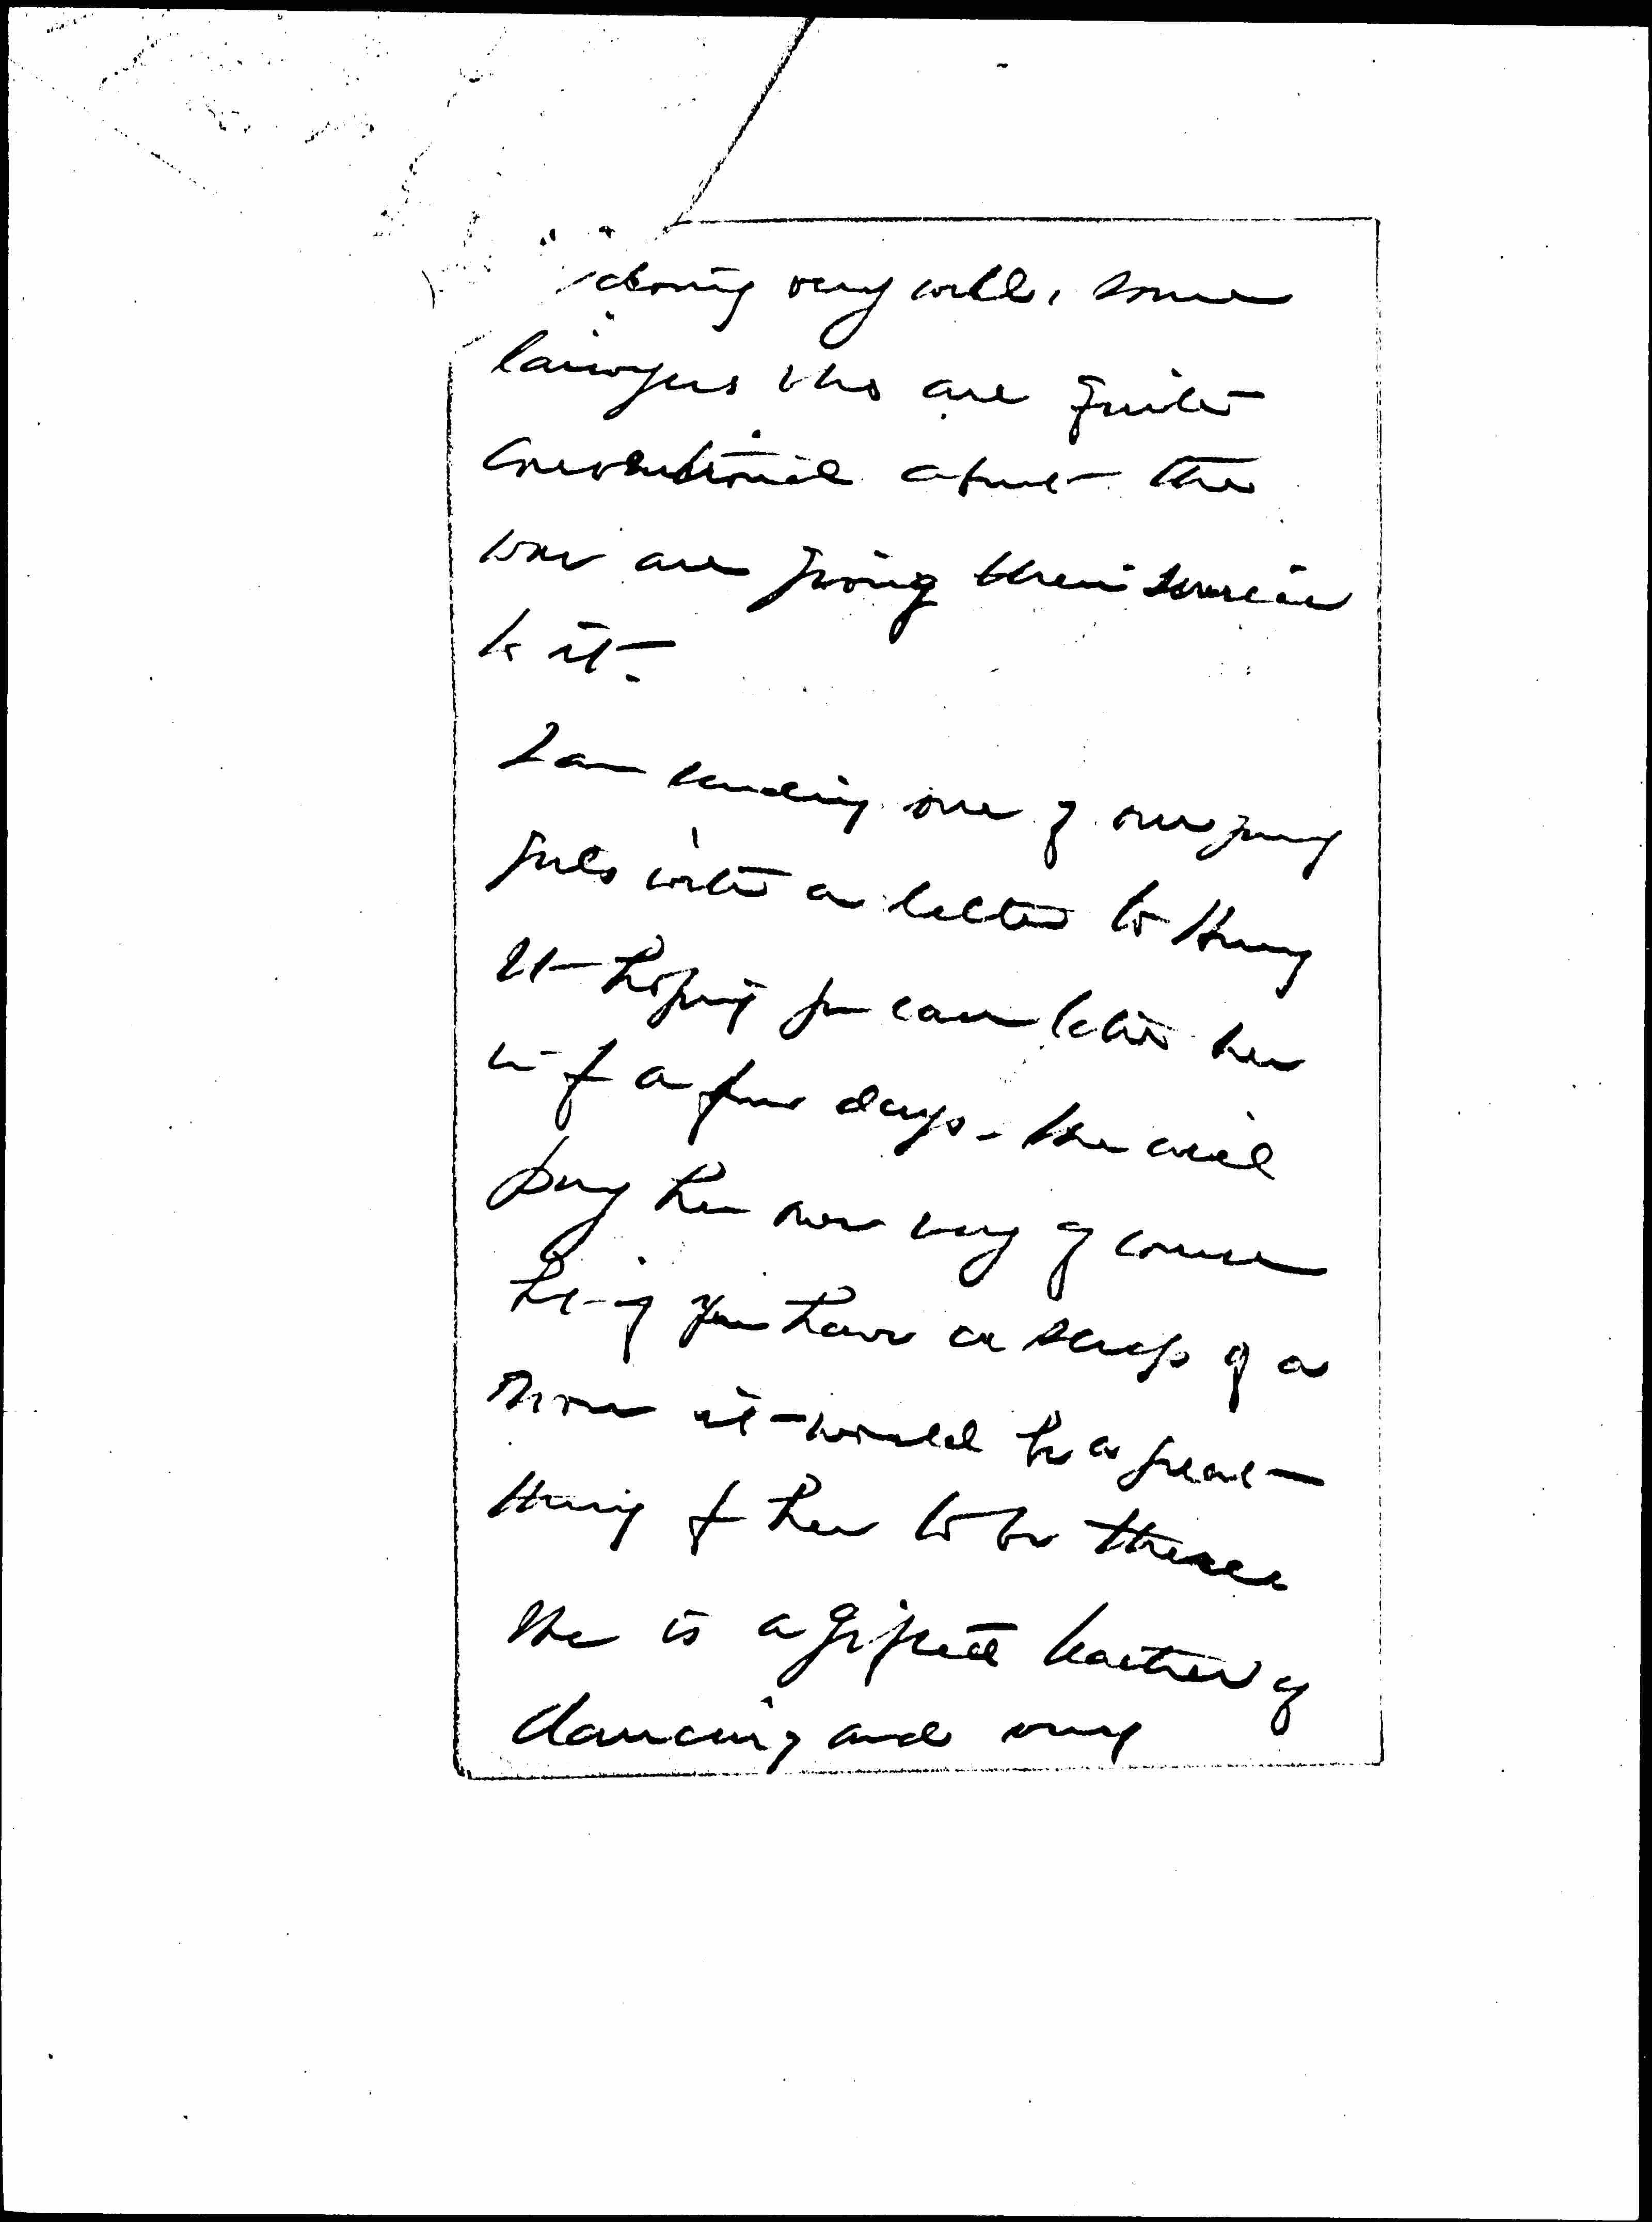 doing very well, some
lawyers who are quite
conventional about the
war are giving their service
to it.
I am sending one of our young
girls with a letter to Henry
St hoping you can take her
in for a few days. She will
pay her own way of course
but if you have a scrap of a
room it would be a great
thing for her to be there
She is a gifted teacher of
dancing and very